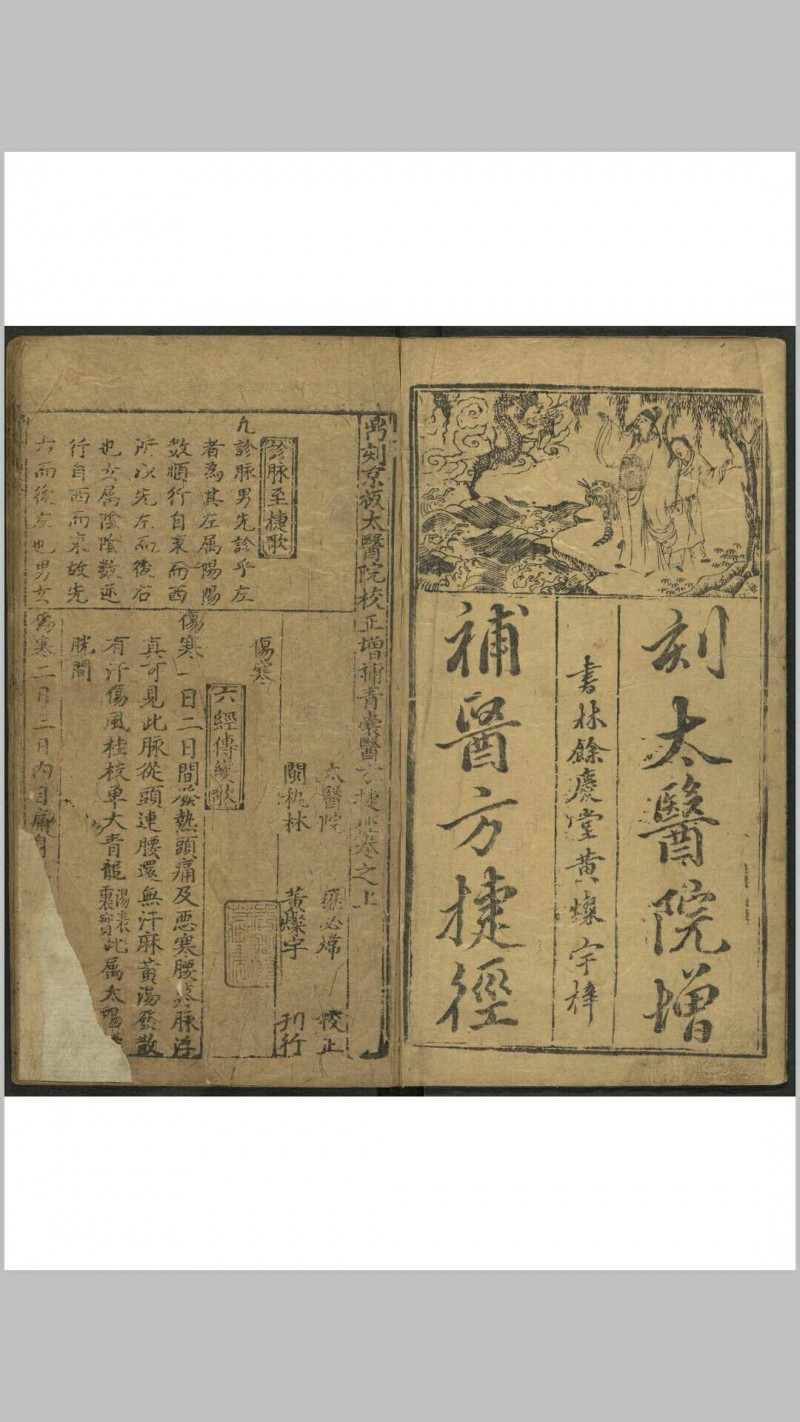 刻太醫院增
書林餘慶堂黃燦宇梓
補醫方捷徑
京板太醫院校正增補青囊醫方捷徑卷之上
診脉至捷歌
凡診脉男先診乎左
者為其左属陽陽
数順行自東而西
所以先左而後右
也女属陰陰数逆
行自西而東故先
右而後左也男女
太醫院 羅必煒 校正
閩札林 黃燦宇 刊行
傷寒
六經傳變歌
傷寒一日二日間發熱頭痛及惡寒腰脉浮
真可見此脉從頭連腰還無汗麻黃湯發散
有汗傷風桂枝車大青龍湯表裏實此属太陽
胱間
傷寒二日三日内目痛